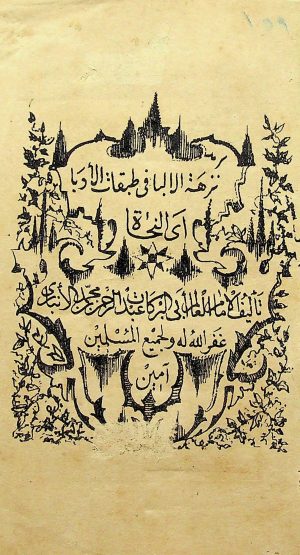 نزهة الالبا في طبقات الأدبا
أى النحاة
تأليف الامام العالم أبي البركات عبد الرحمن محمد الأنباري
غفر الله له ولجميع المسلمين
آمين